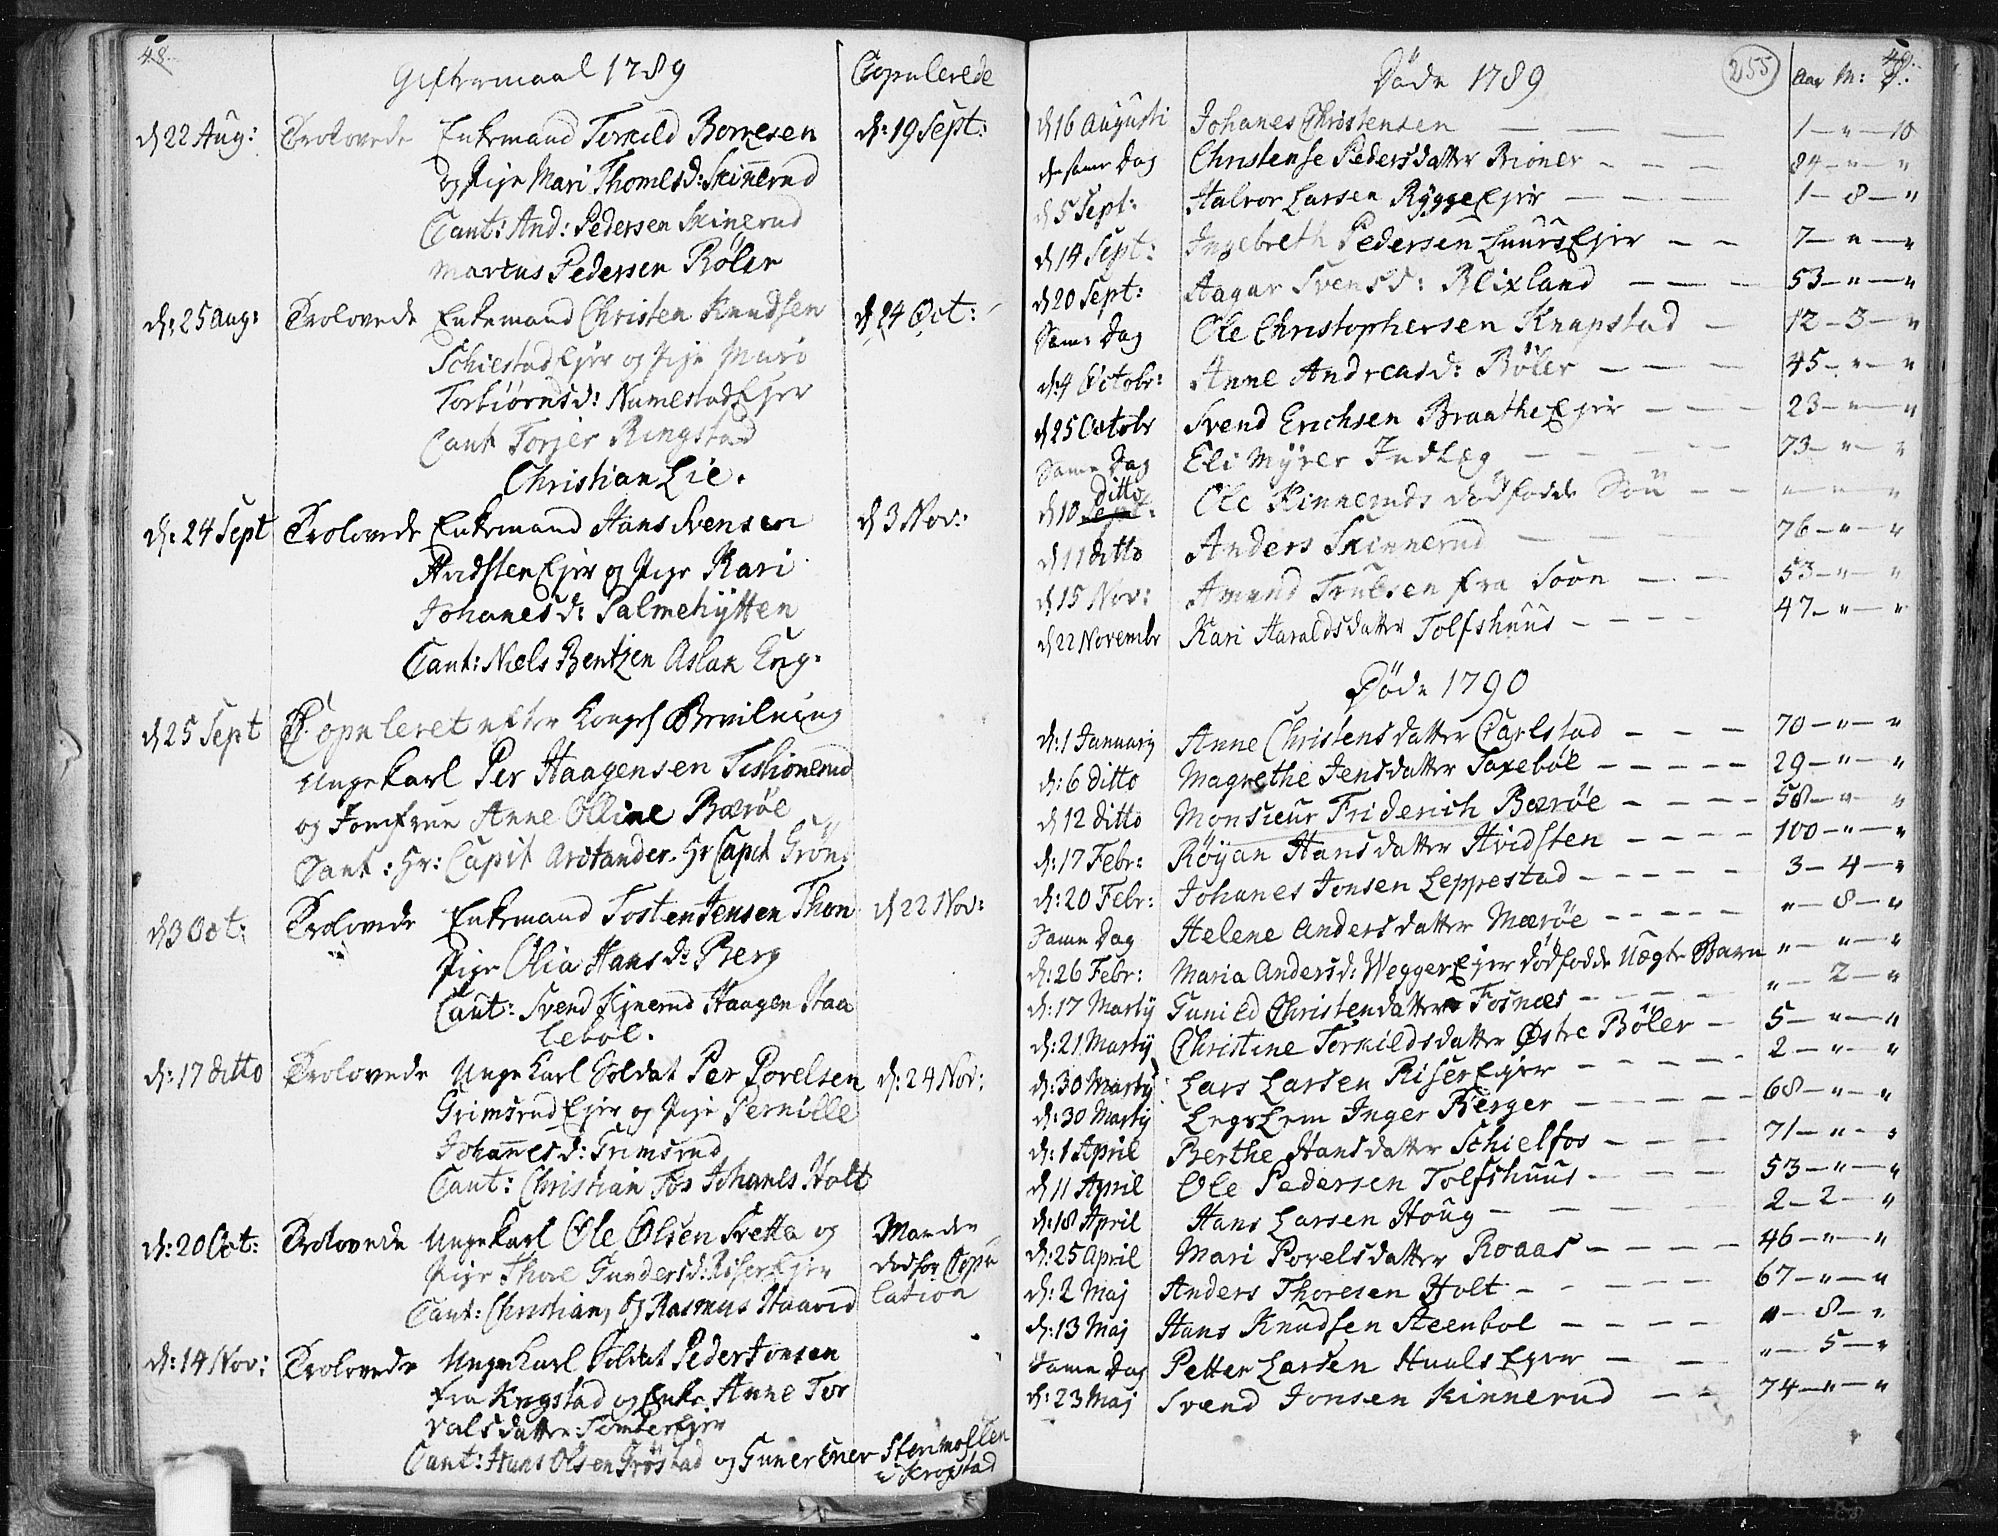 48.
Giftermaal 1789 Copulerede
d 22 Aug: Trolovede Enkemand Torkild Borresen d: 19 Sept:
og Pige Mari Thomesd: Skinnerud
Caut: And: Pedersen Skinerud
Martus Pedersen Bøler
d: 25 Aug: Trolovede Enkemand Christen Knudsen d 24 Oct:
Schiestad Ejer og Pige Mari
Torbiørnsd: Namestad Ejer
Caut Torjer Ringstad
Christian Lie.
d: 24 Sept Trolovede Enkemand Hans Svensen d 3 Nov:
Hvidsten Ejer og Pige Kari
Johanesd: Salmehÿtten
Caut: Niels Bentzen Aslak Eng.
d 25 Sept Copuleret efter Kongel Bevilning
Ungekarl Per Haagensen
og Jomfrue Anne Olline Bærøe
Caut: Hr: Capit Arctander. Hr Capit Grøn:
d 3 Oct: Trolovede Enkemand Tosten Jensen Thon d 22 Nov:
Pige Olia Hansd: Berg
Caut: Svend Haagen Haa
lebol.
d: 17 ditto Trolovede Unge Karl Soldat Per Povelsen d: 24 Nov:
Grimsrud Ejer og Pige Pernille
Johannesd: Grimsrud
Caut: Christian Fos Johanes Holt
d: 20 Oct: Trolovede Ungekarl Ole Olsen Sletta og Manden
Pige Thore Gundersd: Riser Ejer død for Copu
Caut: Christian, og Rasmus Haavid lation
d: 14 Nov: Trolovede Unge Karl Soldat Peder Jonsen
fra Krogstad og Enke Anne Tor
valsdatter Ejer
Caut: Hans Olsen Grøstad og Guner Ener Stenmollen
i Krogstad
Døde 1789 255 Aar M: D: 49.
d 16 Augusti Johanes Christensen 1 — " — 10
den same Dag Christense Pedersdatter Rioner 84 — " — "
d 5 Sept: Halvor Larsen Rÿgge Ejer 1 — 8 — "
d 14 Sept: Ingebreth Pedersen Huurs Ejer 7 — " — "
d 20 Sept: Aagar Svensd: Blixland 53 — " — "
Same Dag Ole Christophersen Knapstad 12 — 3 — "
d: 4 Octobr: Anne Andreasd: Bøler 45 — " — "
d 25 Octobr Svend Erichsen Braathe Ejer 23 — " — "
Same Dag Eli Mÿrer Indlæg 73 — " — "
d 10 ditto Ole Kinneruds dødfødde Søn " — " — "
d 11 ditto Anders Skinnerud 76 — " — "
d 15 Nov: Amund Trulsen fra Soon 53 — " — "
d 22 Novembr Kari Haraldsdatter Tolfshuus 47 — " — "
Døde 1790
d: 1 Januarÿ Anne Christensdatter Carlstad 70 — " — "
d: 6 ditto Magrethe Jensdatter Saxebøl 29 — " — "
d 12 ditto Monsieur Friderich Bærøe 58 — " — "
d: 17 Febr: Røÿan Hansdatter Hvidsten 100 — " — "
d: 20 Febr: Johanes Jonsen Leppestad 3 — 4 — "
Same Dag Helene Andersdatter Mærøe " — 8 — "
d: 26 Febr: Maria Andersd: Wegger Ejer dødfødde Uægte Barn " — " — "
d: 17 Martÿ Gunild Christendatter Fosnæs " — 2 — "
d: 21 Martÿ Christine Torkildsdatter Østre Bøler 5 — " — "
d: 30 Martÿ Lars Larsen Riser Ejer 2 — " — "
d: 30 Martÿ Legs Lem Inger Berger 68 — " — "
d: 1 April Berthe Hansdatter Schielfos 71 — " — "
d 11 April Ole Pedersen Tolfshuus 53 — " — "
d: 18 April Hans Larsen Houg 2 — 2 — "
d: 25 April Mari Povelsdatter Roaas 46 — " — "
d: 2 Maj Anders Thoresen Holt 67 — " — "
d: 13 Maj Hans Knudsen Steenbol " — 8 — "
Same Dag Petter Larsen Huals Ejer " — 5 — "
d: 23 Maj Svend Jonsen Kinnerud 74 — " — "